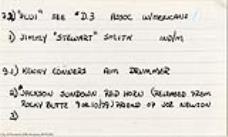 7.2) "PLOI" SEE #D.3 ASSOC W/MERICANS
1) JIMMY "STEWART" SMITH IND/M
9.1) KENNY CONNERS AIM DRUMMER
2) JACKSON SUNDOWN RED HORN (RELEASED FROM
ROCKY BUTTE 9 OR 10/79) FRIEND OF JOE NEWTON
3)